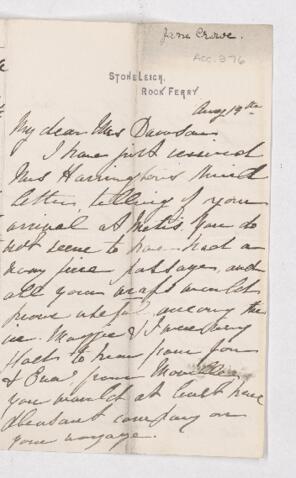 Jane Crowe.
ACC. 976
STONELEIGH,
ROCK FERRY
Aug 19th
My dear Mrs Dawson
I have just received
Mrs Harrington's kind
letter telling of your
arrival at Metis. You do
not seem to have had a
very fine passage, and
all your wraps would
prove useful among the
ice. Maggie & I were very
glad to hear from you
& Eva from Moville
you would at least have
pleasant company on
your voyage.